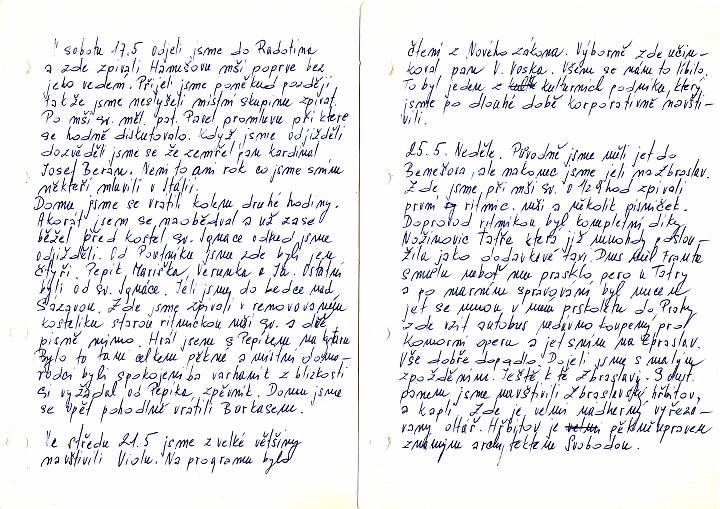 V sobotu 17.5 odjeli jsme do Radotína
a zde zpívali Hamušovu mši poprve bez
jeho vedem. Přijel jsme poněkud později
takže jsme neslyšeli místní skupinu zpívat.
Po mši sv. měl pot. Pavel promluvu při které
se hodně diskutovalo. Když jsme odjížděli
dozvěděli jsme se že zemřel pan kardinal
Josef Beran. Není to ani rok co jsme s ním
někteří mluvili v Itálii.
Domu jsme se vrátili kolem druhé hodiny.
Akorát jsem se naobědval a už zase
běžel před kostel sv. Ignáce odkud jsme
odjížděli. Od Poutníku jsme zde byli jen
čtyři. Pepík, Mariška, Verunka a Já. Ostatní
byli od sv. Ignáce. Jeli jsme do Ledec nad
Sázavou. Zde jsme zpívali v renovovaném
kostelíku starou ritmičkou mši sv. a dvě
písně mimo. Hrál jsem s Pepíkem na kytaru
Bylo to tam celkem pěkné a místní domo-
rodci byli spokojeni ba varhaník z blízkosti
si vyžádal od Pepíka, zpěvník. Domu jsme
se opět pohodlně vrátili Borkasem.
Ve středu 21.5 jsme z velké většiny
navštívili Violu. Na programu bylo
čtení z Nového zákona. Výborně zde účin-
koval pan V. Voska. Všem se nám to líbilo.
To byl jeden z kulturních podniku, který
jsme po dlouhé době korporativně navští-
vili.
25.5. Neděle. Původně jsme měli jet do
Benešova, ale nakonec jsme jeli na Zbraslav.
Zde jsme při mši sv. v 12 hod zpívali
první ritmic. mši a několik písniček.
Doprovod ritmikou byl kompletní díky
Nožinovic Tatře která již mnohdy poslou-
žila jako dodávkové taxi. Dnes měl Franta
smůlu neboť mu prasklo pero u Tatry
a po marném spravování byl nucen
jet se mnou v mém prskoletu do Prahy
zde vzít autobus nedávno koupený pro
Komorní operu a jet s ním na Zbraslav.
Vše dobře dopadlo. Dojeli jsme s malým
zpožděním. Ještě k té Zbraslavi. S dust.
panem jsme navštívili Zbraslavský hřbitov,
a kapli. Zde je velmi nadherný vyřezá-
vaný oltář. Hřbitov je pěkně upraven
známým architektem Svobodou.